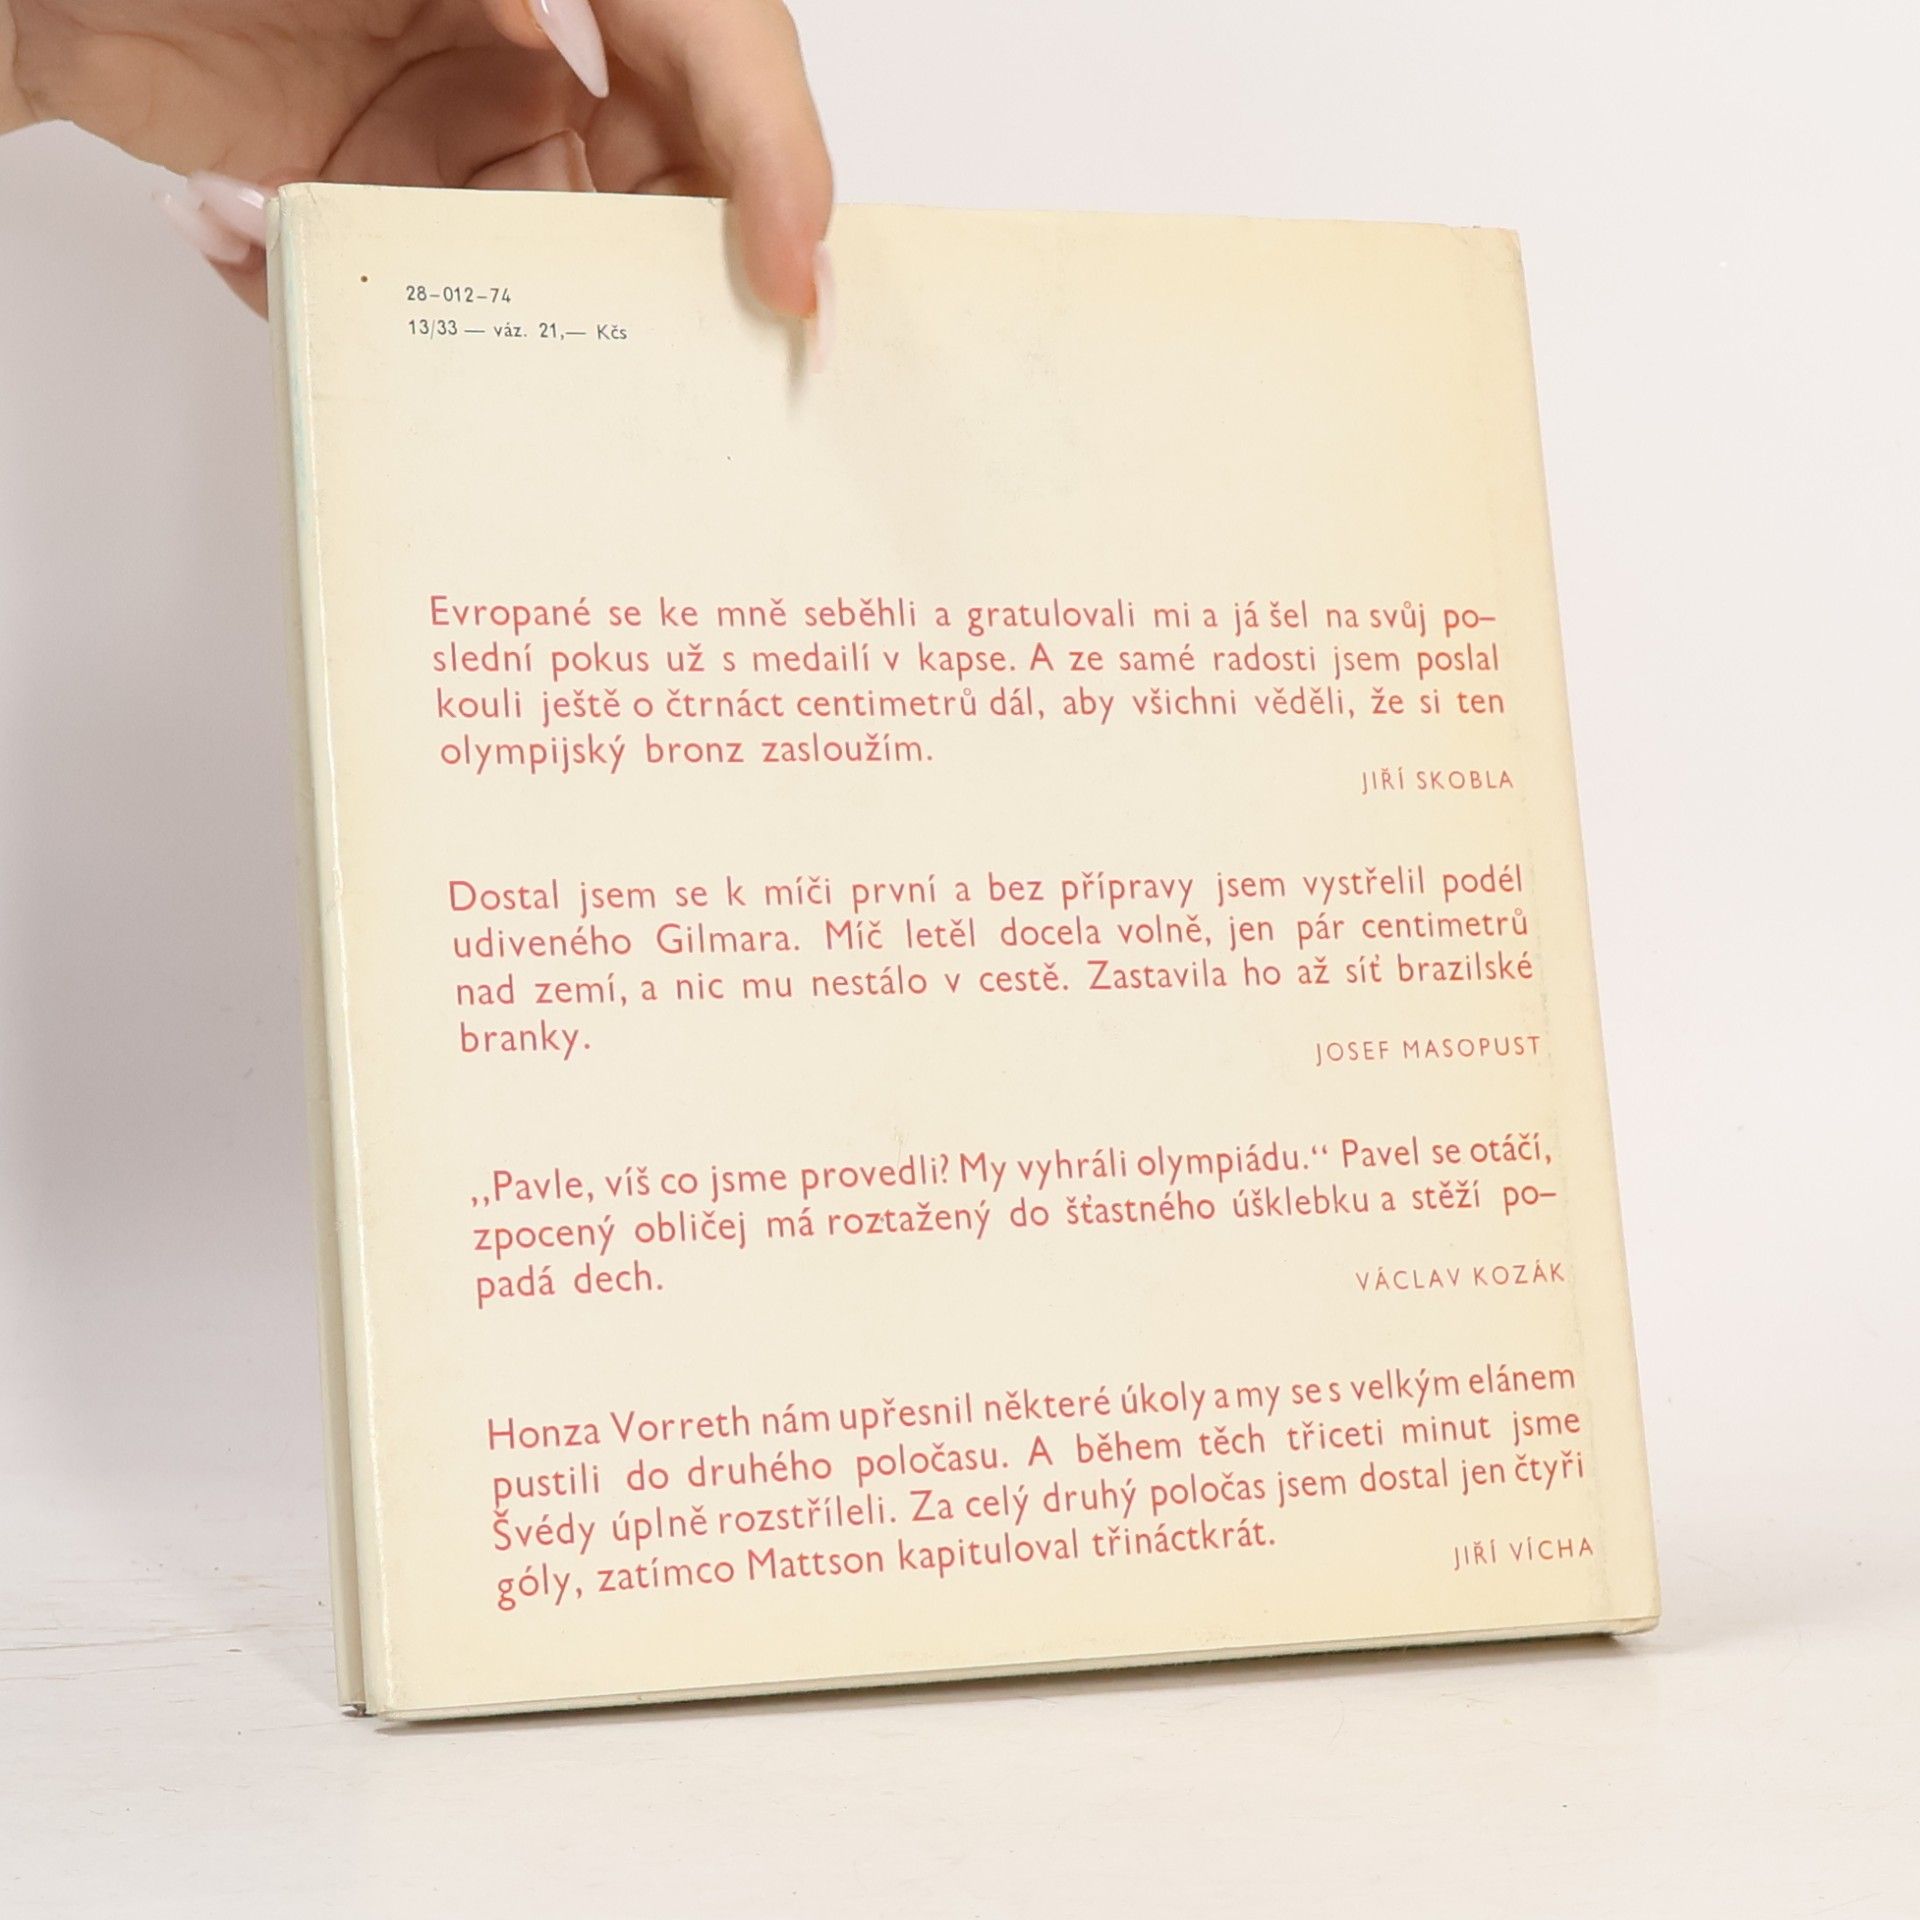 28-012-74
13/33 — váz. 21,— Kčs
Evropané se ke mně seběhli a gratulovali mi a já šel na svůj po-
slední pokus už s medailí v kapse. A ze samé radosti jsem poslal
kouli ještě o čtrnáct centimetrů dál, aby všichni věděli, že si ten
olympijský bronz zasloužím.
JIŘÍ SKOBLA
Dostal jsem se k míči první a bez přípravy jsem vystřelil podél
udiveného Gilmara. Míč letěl docela volně, jen pár centimetrů
nad zemí, a nic mu nestálo v cestě. Zastavila ho až síť brazilské
branky.
JOSEF MASOPUST
„Pavle, víš co jsme provedli? My vyhráli olympiádu.“ Pavel se otáčí,
zpocený obličej má roztažený do šťastného úšklebku a stěží po-
padá dech.
VÁCLAV KOZÁK
Honza Vorreth nám upřesnil některé úkoly a my se s velkým elánem
pustili do druhého poločasu. A během těch třiceti minut jsme
Švédy úplně rozstříleli. Za celý druhý poločas jsem dostal jen čtyři
góly, zatímco Mattson kapituloval třináctkrát.
JIŘÍ VÍCHA